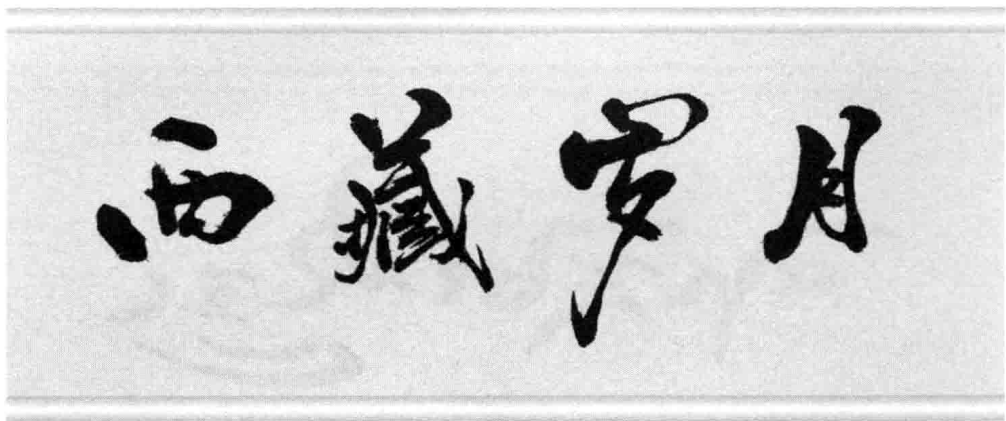 西藏岁月